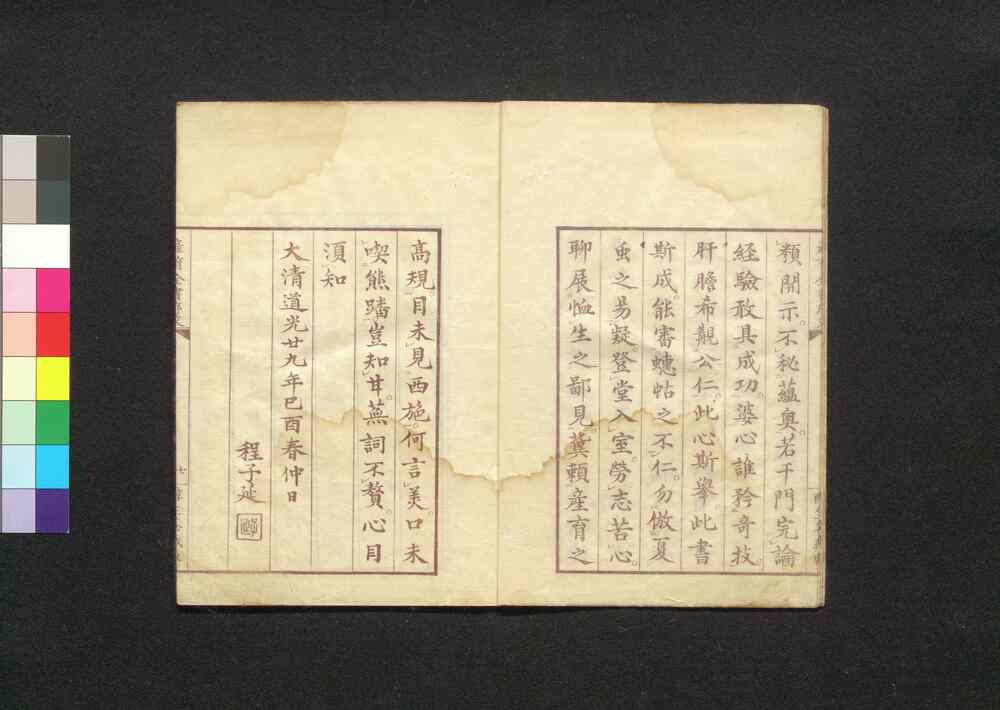 類開示。不秘蘊奧。若干門完論
経驗敢具成功。婆心誰矜奇技。
肝膽希覯公仁。此心斯舉。此書
斯成。能審蟪蛄之不仁。勿倣夏
虫之易疑。登堂入室。勞志苦心。
聊展恤生之鄙見。冀賴産育之
高規。目未見西施。何言美。口未
喫熊蹯。豈知甘。蕪詞不贅。心目
湏知
大清道光廿九年巳酉春仲日
程子延